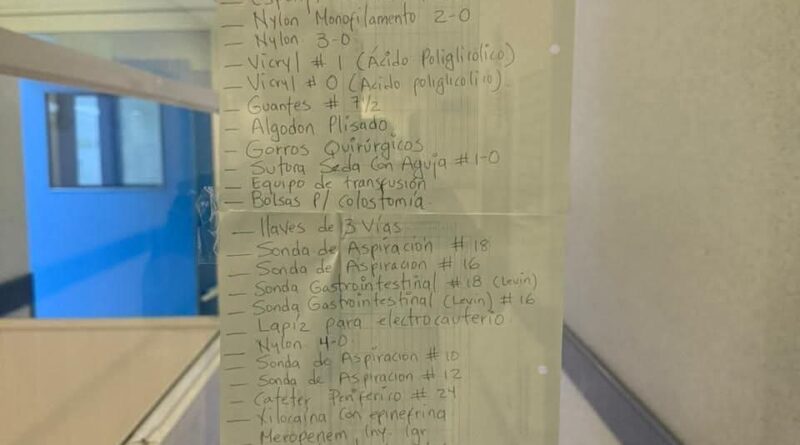 — Nylon Monofilamento 2-0
— Nylon 3-0
— Vicryl # 1 (Ácido Poliglicolico)
— Vicryl # 0 (Acido poliglicolico)
— Guantes # 7 1/2
— Algodon Plisado
— Gorros Quirúrgicos
— Sutura Seda Con Aguja # 1-0
— Equipo de transfusión
— Bolsas P/ Colostomia
— llaves de 3 Vías
— Sonda de Aspiración # 18
— Sonda de Aspiracion # 16
— Sonda Gastrointestinal # 18 (Levin)
— Sonda Gastrointestinal (Levin) # 16
— Lapiz para electrocauterio
— Nylon 4-0
— Sonda de Aspiracion # 10
— Sonda de Aspiracion # 12
— Cateter Periferico # 24
— Xilocaina Con epinefrina
Meropenem Iny. 1gr